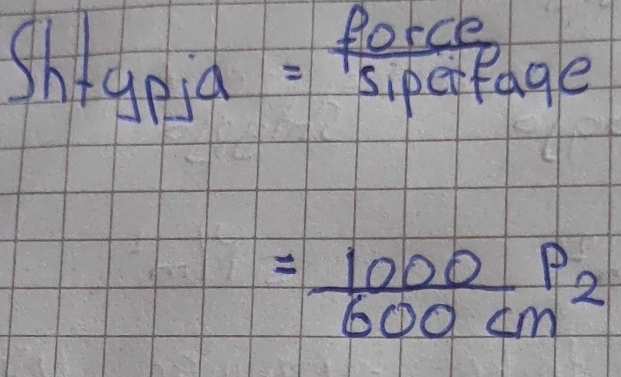 Shtypja = force / siperfaqe
= 1000 P / 600 cm2